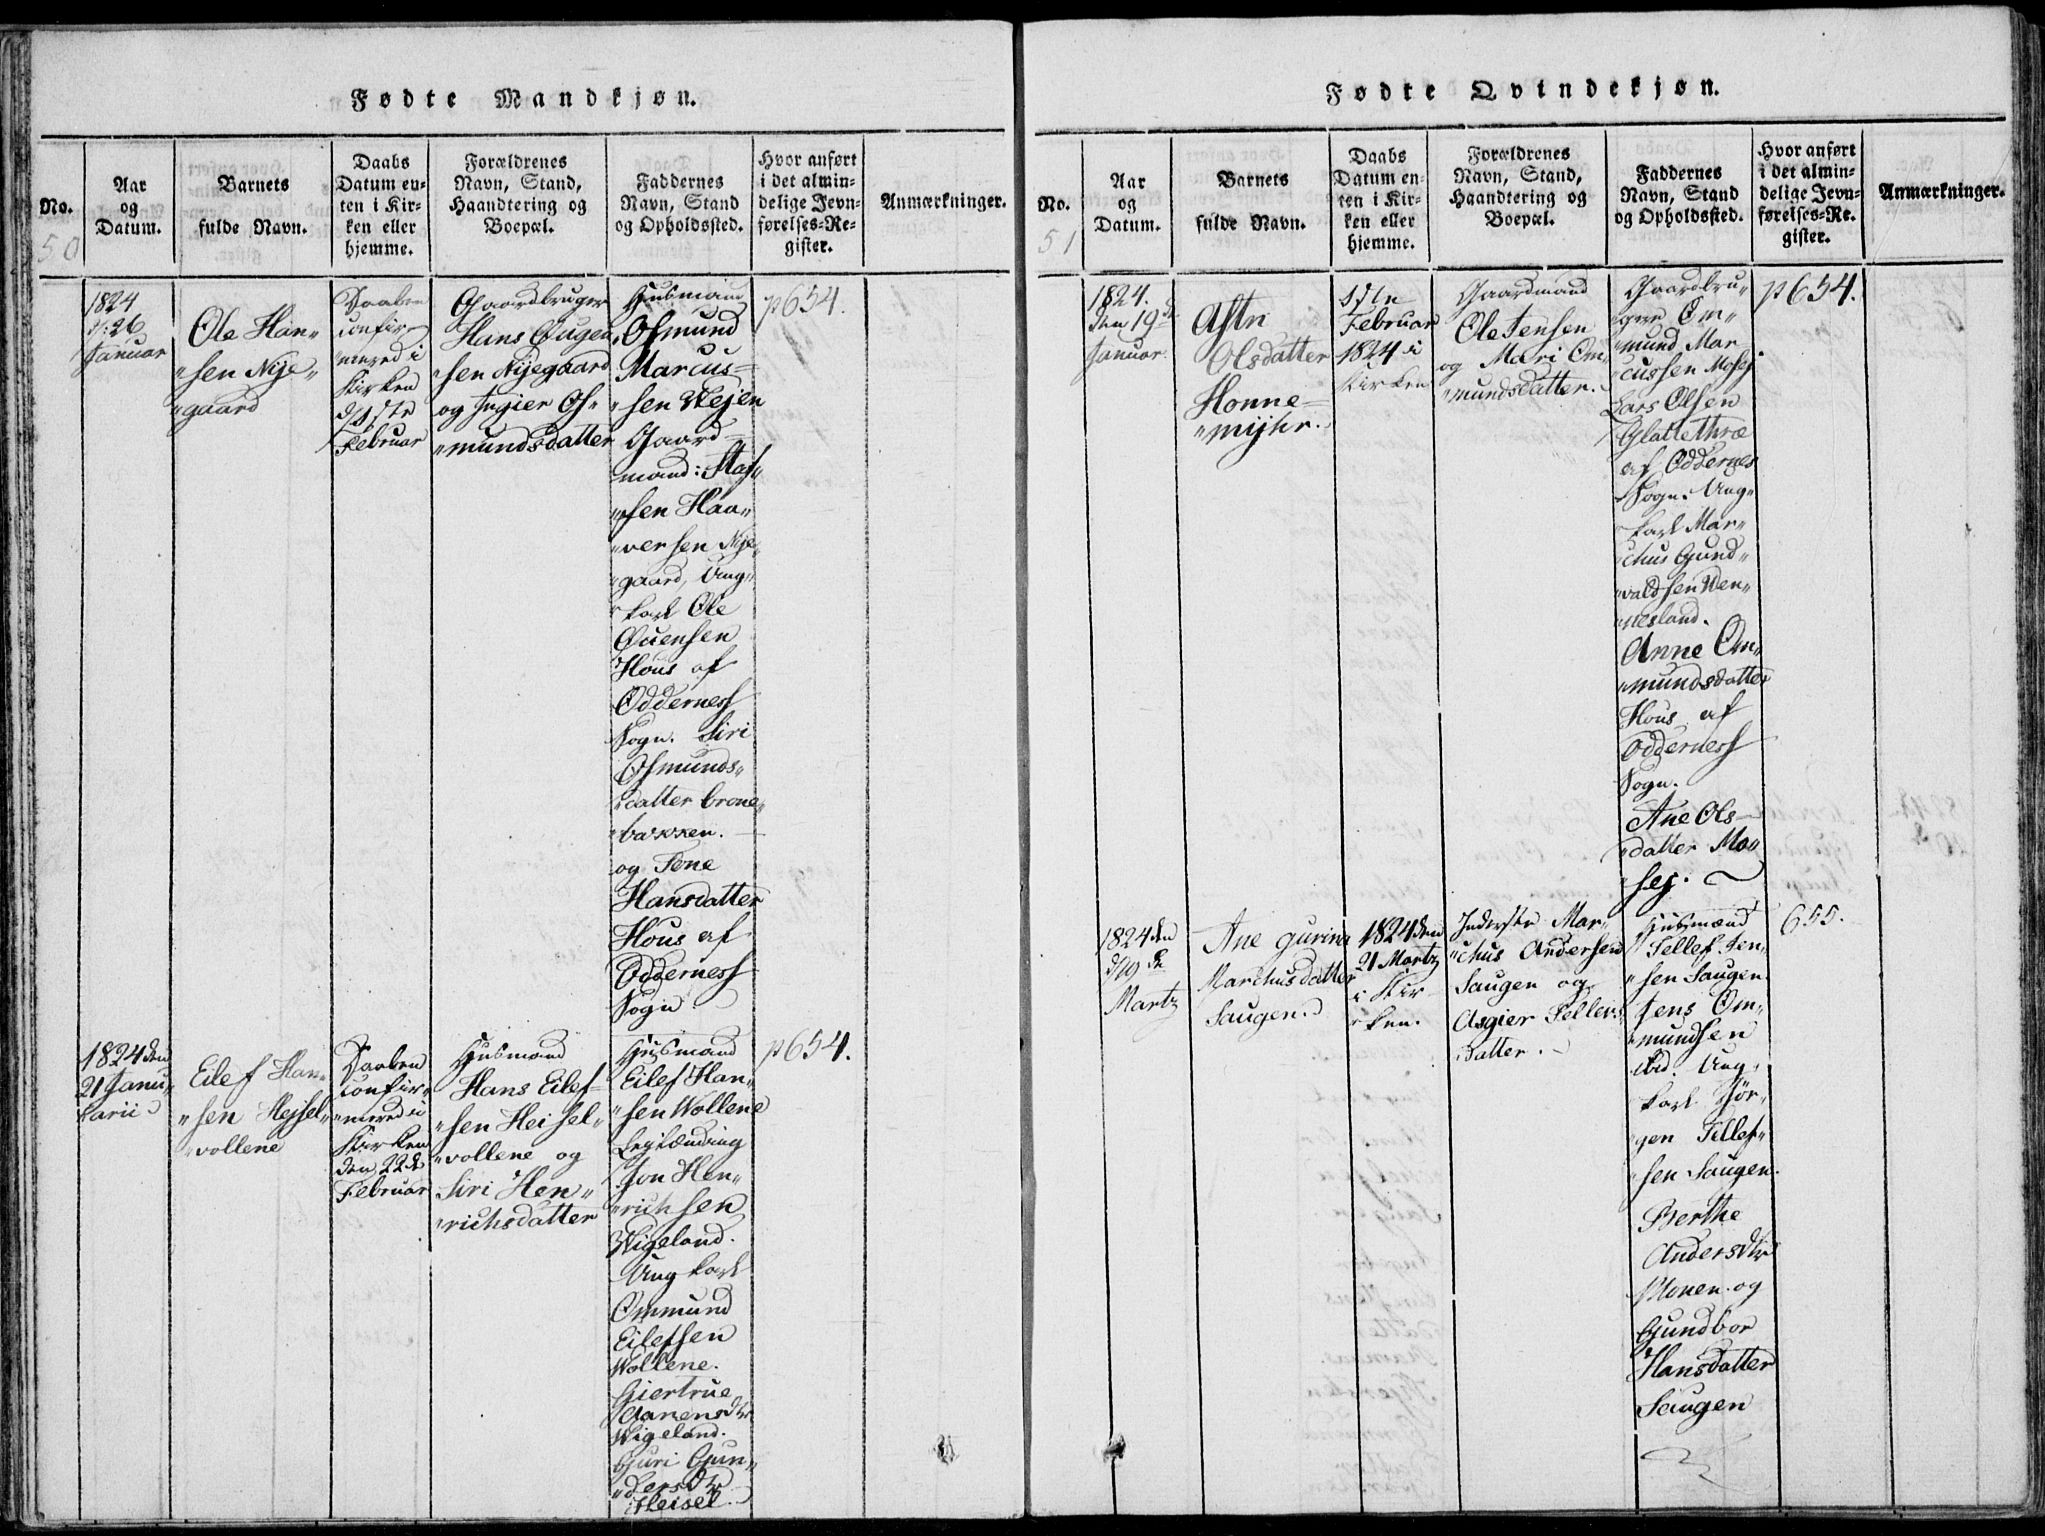 Fødte Mandkjøn.
No.
50
Aar
og
Datum.
Barnets
fulde Navn.
Daabs
Datum en-
ten i Kir-
ken eller
hjemme.
Forældrenes
Navn, Stand,
Haandtering og
Boepæl.
Faddernes
Navn, Stand
og Opholdssted.
Hvor anført
i det almin-
delige Jevn-
førelses-Re-
gister.
Anmærkninger.
1824
d: 26
Januar
Ole Han„
„sen Nije„
„gaard
Daaben
confir„
„mered i
Kirken
Februar
Gaardbruger
Hans
„sen Nijegaard
og Ingier Os„
„mundsdatter
Husmand
Osmund
Marcus=
„sen Wejen
Gaard=
mand:
„sen Haa„
„versen Nije„
„gaard, Ung„
„karl Ole
House af
Oddernes
Sogn. Siri
Osmunds„
„datter brone„
„bakken.
og Tone
Hansdatter
Hous af
Oddernes
Sogn
p 654.
1824 den
21 Janu„
„arii
Eilef Han„
„sen Hejsel„
„vollene
Daaben
confir„
„mered i
Kirken
den 22de
Februar
Husmand
Hans Eilef=
„sen Heisel„
„vollene og
Siri Hen„
„richsdatter
Husmand
Eilef Han„
„sen Wollene
Leylænding
Jon Hen„
„richsen
Wigeland.
Ung karl
Ommund
Eilefsen
Wollene.
Giertrue
Aanensdtr
Wigeland.
Guri Gun„
„dersdtr
Heisel.
p 654.
Fødte Qvindekjøn.
No.
51
Aar
og
Datum.
Barnets
fulde Navn.
Daabs
Datum en-
ten i Kir-
ken eller
hjemme.
Forældrenes
Navn, Stand,
Haandtering og
Boepæl.
Faddernes
Navn, Stand
og Opholdssted.
Hvor anført
i det almin-
delige Jevn-
førelses-Re-
gister.
Anmærkninger.
1824.
den 19de
Januar
Astri
Olsdatter
Honne=
„mijhr.
Februar
1824 i
Kirken
Gaardmand
Ole Jensen
og Mari Om„
„mundsdatter.
Gaardbru„
„ger Om„
„mund Mar
„cussen Mosej
Lars Olsen
Glattetræ
af Oddernes
Sogn. Ung„
„karl Mar„
„chus Gund„
„valdsen Wen„
„nesland.
Anne Om„
„mundsdatter
Hous af
Oddernes
Sogn.
Ane Ols=
„datter Mo„
„sej.
p 654.
1824 den
Martz
Ane gurine
Marchusdatter
Saugen.
1824 den
21 Martz
i Kir„
„ken.
Inderste Mar„
„chus Andersen
Saugen og
Asgier Tellevs„
datter.
Husmænd
Tellef Jen„
„sen Saugen.
Jens Om„
„mundsen
ibid. Ung„
„karl Jør„
„gen Tellef„
„sen Saugen.
Berthe
Andersdtr
Monen og
Gundbor
Hansdatter
Saugen
655.